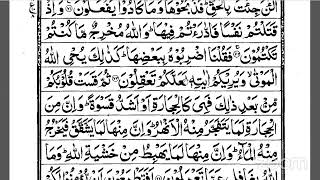 الْـٰٔنَ جِئْتَ بِالْحَقِّ ؕ فَذَبَحُوْهَا وَمَا كَادُوْا يَفْعَلُوْنَ ۞ وَاِذْ
قَتَلْتُمْ نَفْسًا فَادّٰرَءْتُمْ فِيْهَا ؕ وَاللّٰهُ مُخْرِجٌ مَّا كُنْتُمْ
تَكْتُمُوْنَ ۞ فَقُلْنَا اضْرِبُوْهُ بِبَعْضِهَا ؕ كَذٰلِكَ يُحْىِ اللّٰهُ
الْمَوْتٰى ۙ وَيُرِيْكُمْ اٰيٰتِهٖ لَعَلَّكُمْ تَعْقِلُوْنَ ۞ ثُمَّ قَسَتْ قُلُوْبُكُمْ
مِّنْۢ بَعْدِ ذٰلِكَ فَهِىَ كَالْحِجَارَةِ اَوْ اَشَدُّ قَسْوَةً ؕ وَاِنَّ مِنَ
الْحِجَارَةِ لَمَا يَتَفَجَّرُ مِنْهُ الْاَنْهٰرُ ؕ وَاِنَّ مِنْهَا لَمَا يَشَّقَّقُ فَيَخْرُجُ
مِنْهُ الْمَآءُ ؕ وَاِنَّ مِنْهَا لَمَا يَهْبِطُ مِنْ خَشْيَةِ اللّٰهِ ؕ وَمَا
اللّٰهُ بِغَافِلٍ عَمَّا تَعْمَلُوْنَ ۞ اَفَتَطْمَعُوْنَ اَنْ يُّؤْمِنُوْا لَكُمْ